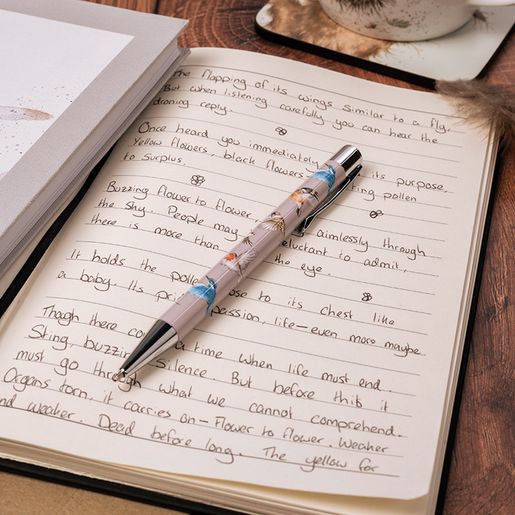 The flapping of its wings similar to a fly.
But when listening carefully you can hear the
droning reply.
Once heard you immediately its purpose,
Yellow flowers, black flowers ting pollen
to surplus.
Buzzing flower to flower, aimlessly through
the sky. People may reluctant to admit,
there is more than the eye.
It holds the pollen close to its chest like
a baby. Its passion, life-even more maybe.
Though there a time when life must end
Sting, buzzing silence. But before this it
must go through what we cannot comprehend.
Organs torn, it carries on- Flower to flower. Weaker
and weaker. Dead before long. The yellow for